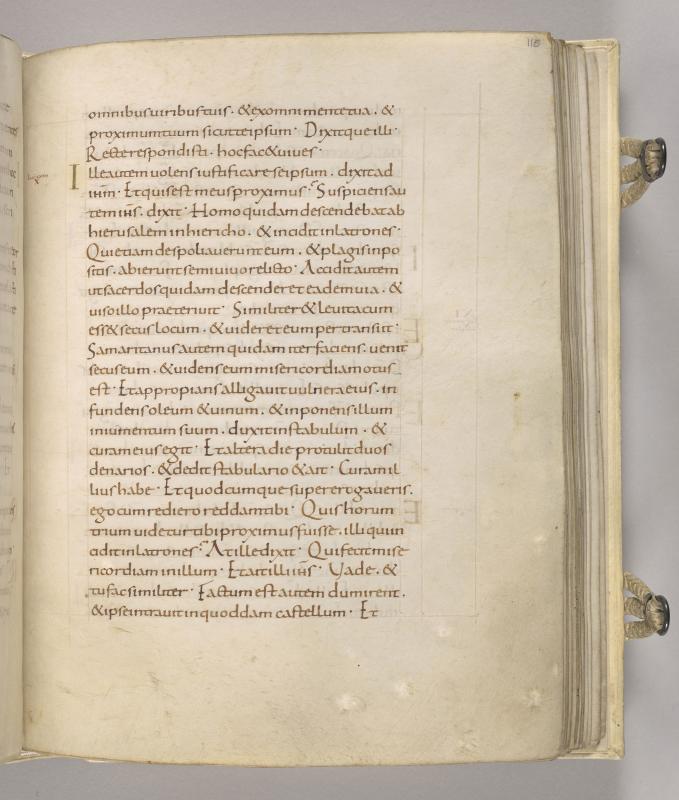 110
omnibus uiribus tuis · & ex omni mente tua · &
proximum tuum sicut te ipsum · Dixitque illi ·
Recte respondisti · hoc fac & uiues ·
Ille autem uolens iustificare se ipsum · dixit ad
ihm̄ · Et quis est meus proximus · Suspiciens au
tem ihs̄ · dixit · Homo quidam descendebat ab
hierusalem in hiericho · & incidit in latrones ·
Qui etiam despoliauerunt eum · & plagis inpo
sitis · abierunt semiuiuo relicto · Accidit autem
ut sacerdos quidam descenderet eadem uia · &
uiso illo praeteriuit · Similiter & leuita cum
ess& secus locum · & uideret eum pertransiit ·
Samaritanus autem quidam iter faciens · uenit
secus eum · & uidens eum misericordia motus
est · Et appropians alligauit uulnera eius · in
fundens oleum & uinum · & inponens illum
in iumentum suum · duxit in stabulum · &
curam eius egit · Et altera die protulit duos
denarios · & dedit stabulario & ait · Curam il
lius habe · Et quodcumque supererogaueris ·
ego cum rediero reddam tibi · Quis horum
trium uidetur tibi proximus fuisse · illi qui in
cidit in latrones · At ille dixit · Qui fecit mise
ricordiam in illum · Et ait illi ihs̄ · Uade · &
tu fac similiter · Factum est autem dum irent ·
& ipse intrauit in quoddam castellum · Et